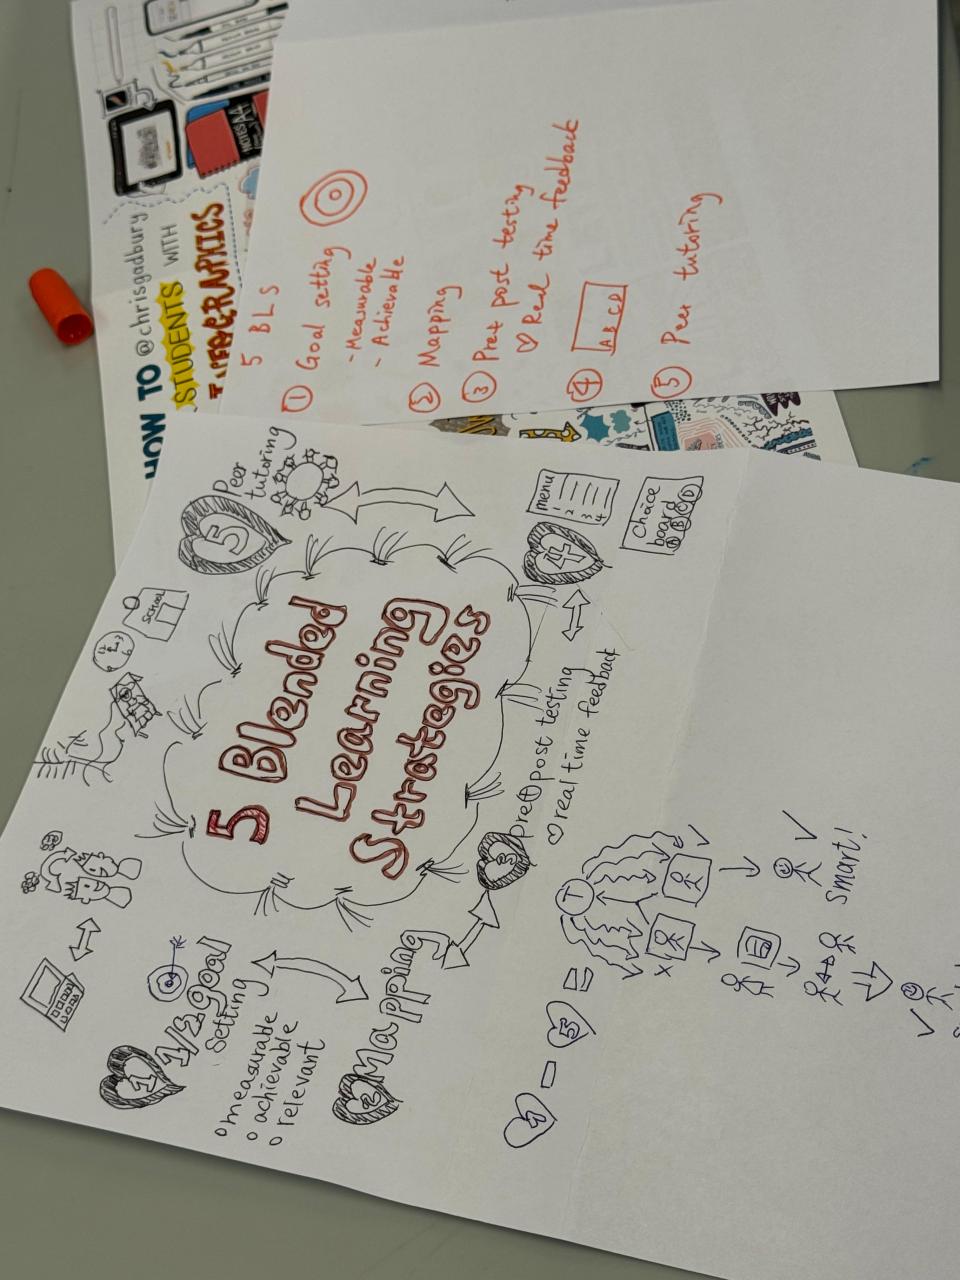 HOW TO @chrisgadbury
STUDENTS WITH
INFOGRAPHICS
NOTES A4
5 BLS
① Goal setting
- Measurable
- Achievable
② Mapping
③ Pret post testing
♡ Real time feedback
④ A B C D
⑤ Peer tutoring
5 Blended
Learning
Strategies
1 1/2 goal
setting
○ measurable
○ achievable
○ relevant
2 Mapping
3 pre⊕post testing
♡ real time feedback
4
menu
1
2
3
4
Choice
board
A B C D
5 Peer
tutoring
SCHOOL
4 - 5 =
T
smart!